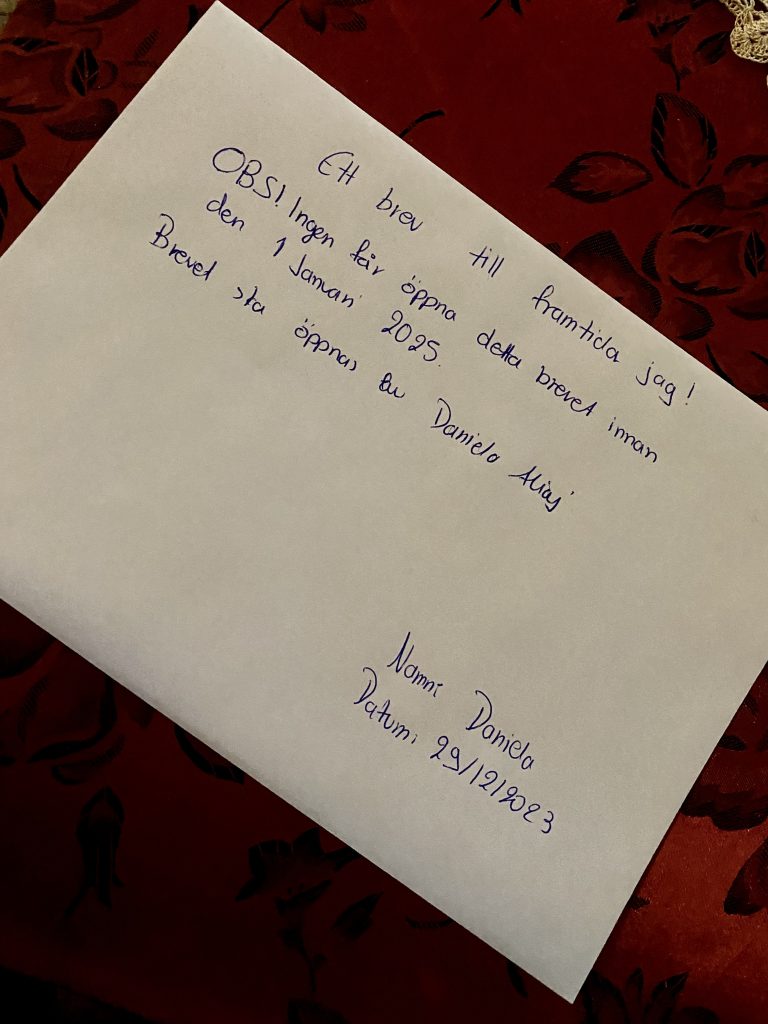 Ett brev till framtida jag!
OBS! Ingen får öppna detta brevet innan
den 1 Januari 2025.
Brevet ska öppnas av Daniela
Namn: Daniela
Datum: 29/12/2023